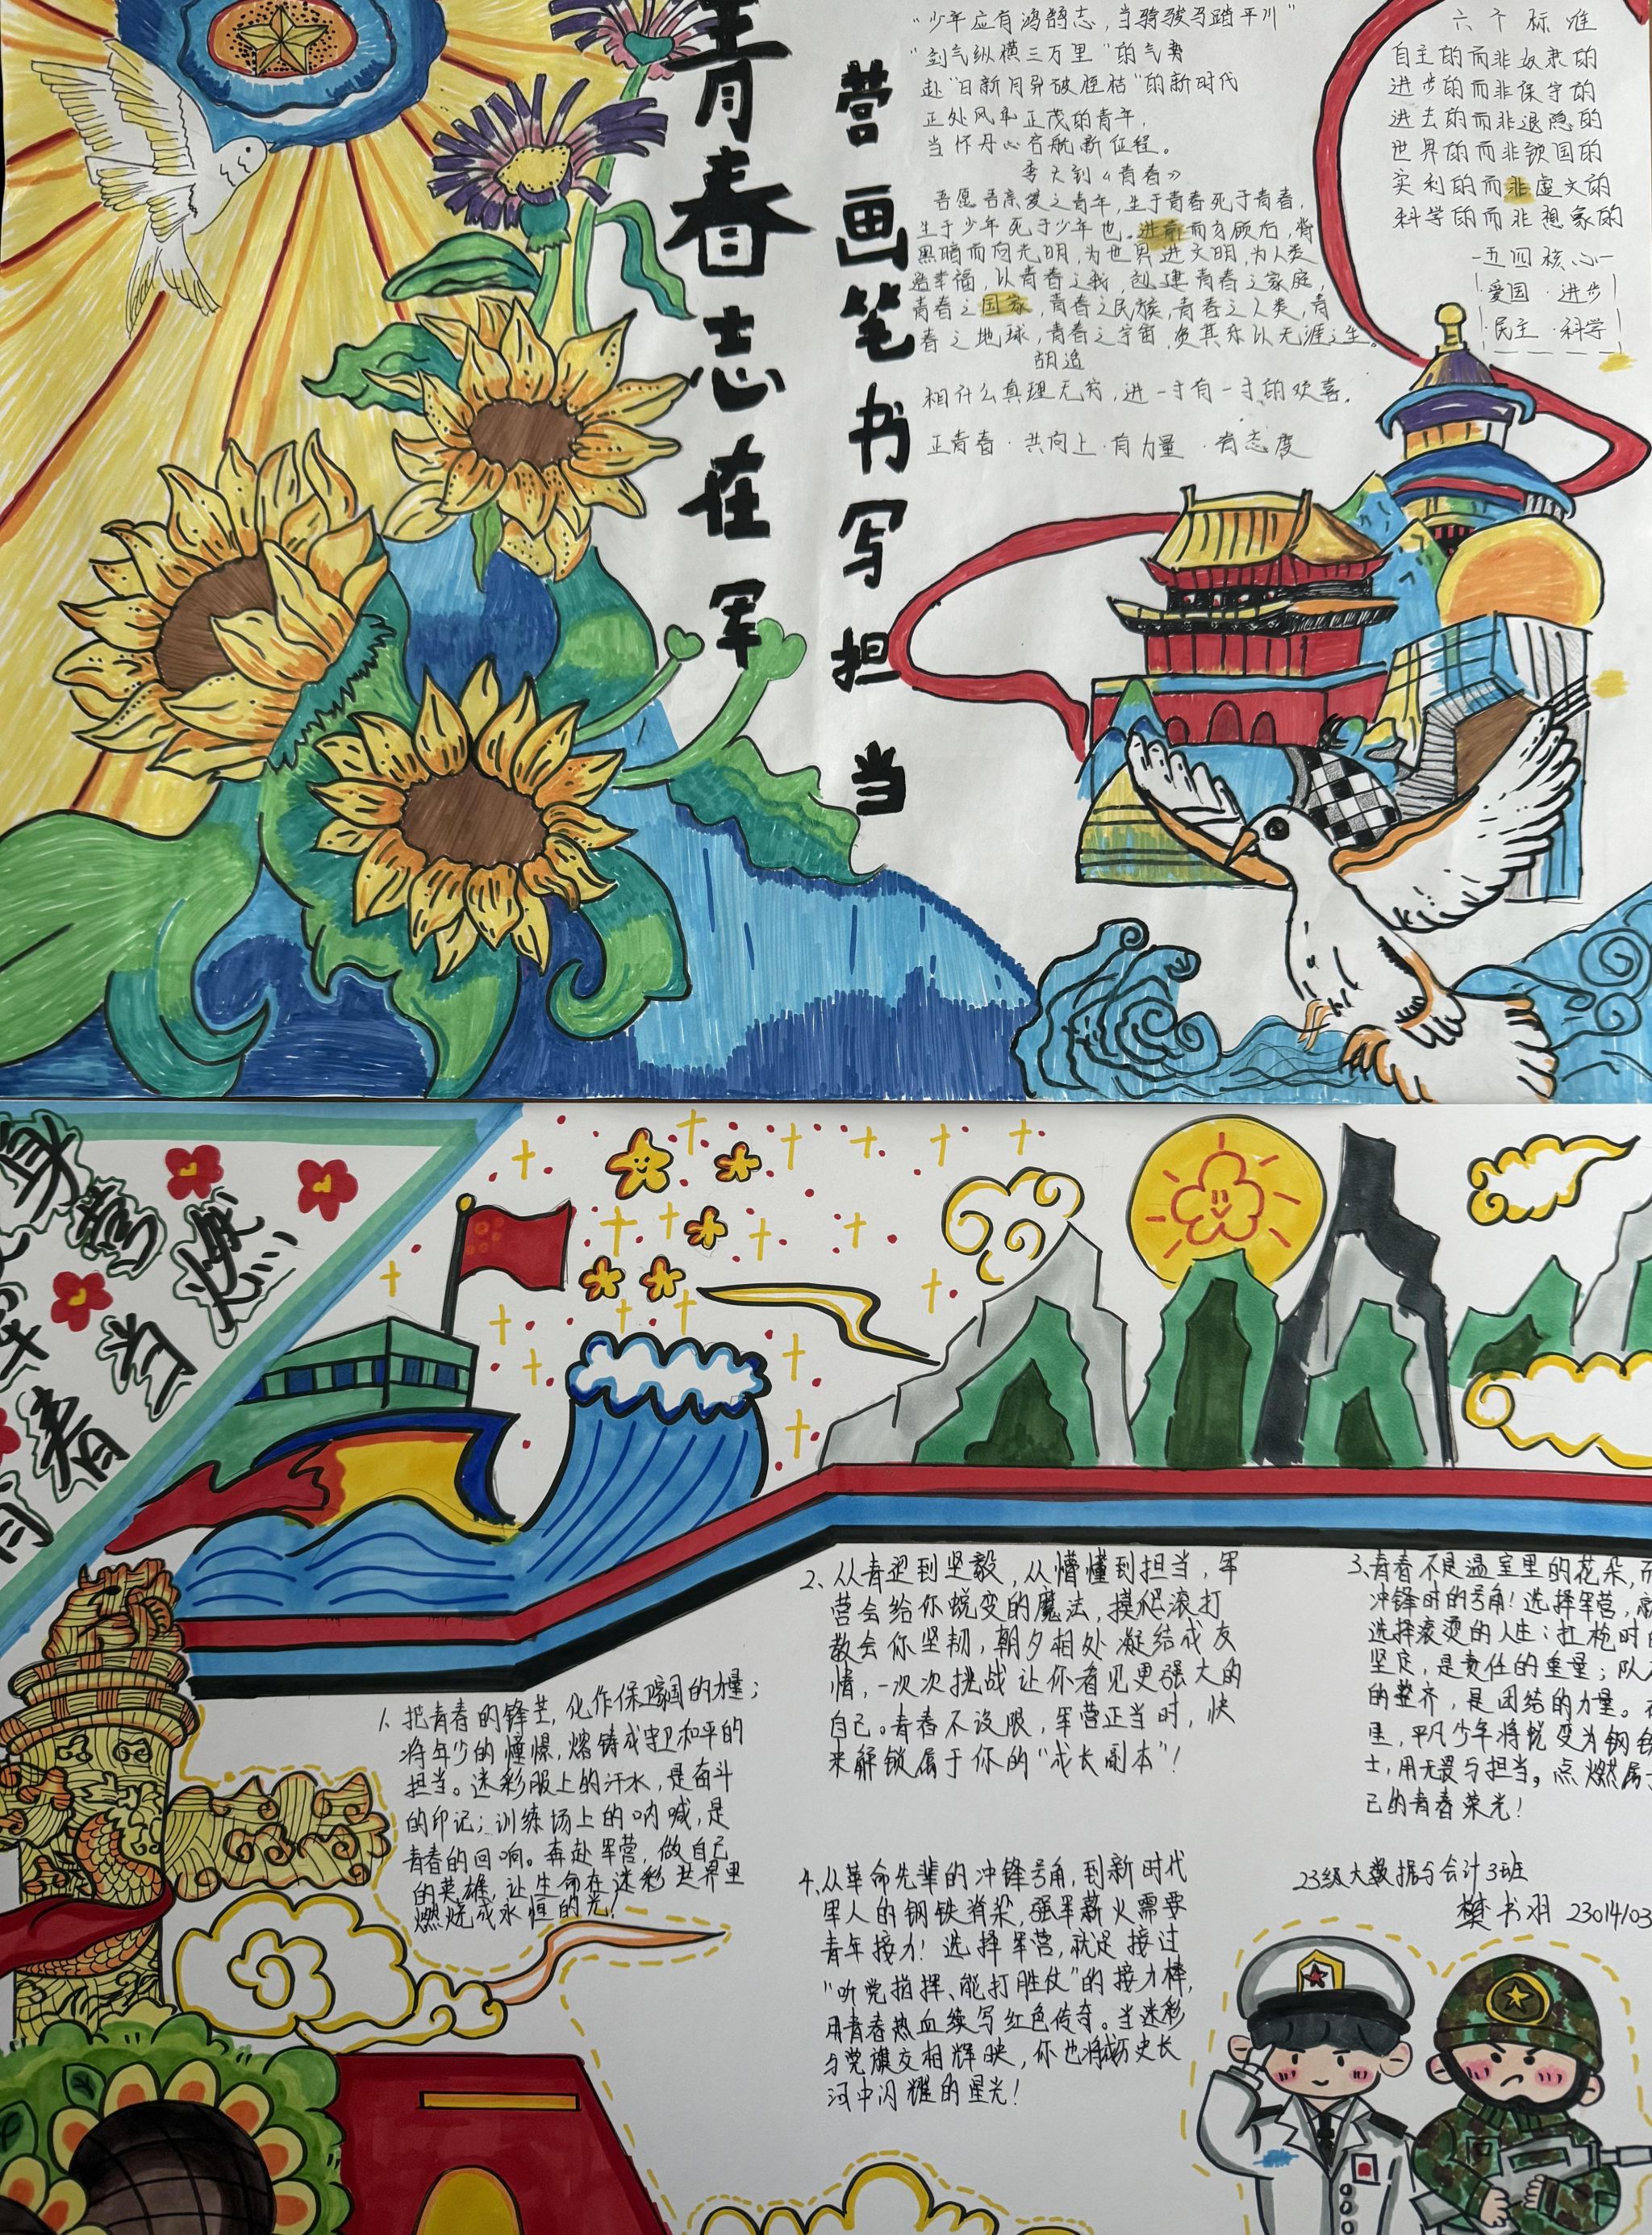 青春志在军
营画笔书写担当
“少年应有鸿鹄志，当骑骏马踏平川”
“剑气纵横三万里”的气势
赴“日新月异破桎梏”的新时代
正处风华正茂的青年，
当怀丹心启航新征程。
李大钊《青春》
吾愿吾亲爱之青年，生于青春死于青春，
生于少年死于少年也。进前而勿顾后，背
黑暗而向光明，为世界进文明，为人类
造幸福，以青春之我，创建青春之家庭，
青春之国家，青春之民族，青春之人类，青
春之地球，青春之宇宙，资其乐以无涯之生。
胡适
相什么真理无穷，进一寸有一寸的欢喜。
正青春·共向上·有力量·有态度
六个标准
自主的而非奴隶的
进步的而非保守的
进去的而非退隐的
世界的而非锁国的
实利的而非虚文的
科学的而非想象的
-五四核心-
爱国·进步
民主·科学
身
营
燃
军
当
青春
1、把青春的锋芒，化作保家国的力量；
将年少的憧憬，熔铸成守卫和平的
担当。迷彩服上的汗水，是奋斗
的印记；训练场上的呐喊，是
青春的回响。奔赴军营，做自己
的英雄，让生命在迷彩世界里
燃烧成永恒的光！
2、从青涩到坚毅，从懵懂到担当，军
营会给你蜕变的魔法，摸爬滚打
教会你坚韧，朝夕相处凝结成友
情，一次次挑战让你看见更强大的
自己。青春不设限，军营正当时，快
来解锁属于你的“成长副本”！
3、青春不是温室里的花朵，而
冲锋时的号角！选择军营，就
选择滚烫的人生：扛枪时的
坚定，是责任的重量；队
的整齐，是团结的力量。在
里，平凡少年将蜕变为钢铁
士，用无畏与担当。点燃属于
己的青春荣光！
4、从革命先辈的冲锋号角，到新时代
军人的钢铁脊梁，强军薪火需要
青年接力！选择军营，就是接过
“听党指挥、能打胜仗”的接力棒，
用青春热血续写红色传奇。当迷彩
与党旗交相辉映，你也将成历史长
河中闪耀的星光！
23级大数据与会计3班
樊书羽 23014103